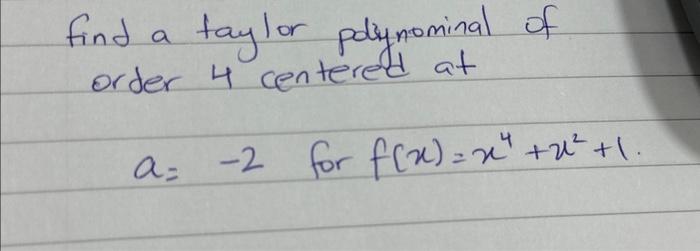 find a taylor polynominal of
order 4 centered at
a = -2 for f(x) = x⁴ + x² + 1.